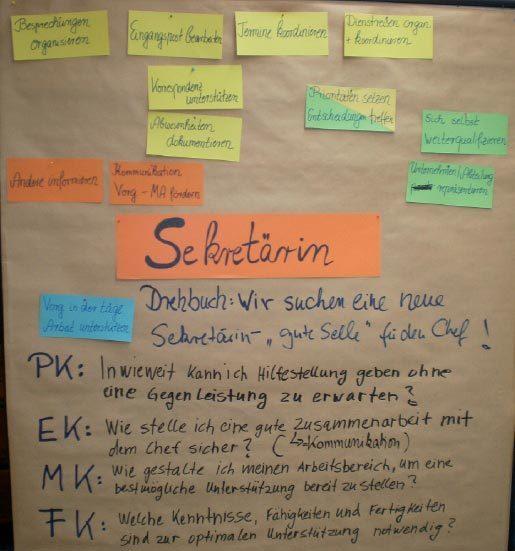 Besprechungen
organisieren
Eingangspost Bearbeiten
Termine koordinieren
Dienstreisen organ.
+ koordinieren
Korrespondenz
unterstützen
Abwesenheiten
dokumentieren
Prioritäten setzen
Entscheidungen treffen
Sich selbst
weiterqualifizieren
Andere informieren
Kommunikation
Vorg – MA fördern
Unternehmen/Abteilung
repräsentieren
Sekretärin
Vorg in der tägl
Arbeit unterstützen
Drehbuch: Wir suchen eine neue
Sekretärin – „gute Seele" für den Chef !
PK: Inwieweit kann ich Hilfestellung geben ohne
eine Gegenleistung zu erwarten?
EK: Wie stelle ich eine gute Zusammenarbeit mit
dem Chef sicher? (↳=Kommunikation)
MK: Wie gestalte ich meinen Arbeitsbereich, um eine
bestmögliche Unterstützung bereit zu stellen?
FK: Welche Kenntnisse, Fähigkeiten und Fertigkeiten
sind zur optimalen Unterstützung notwendig?